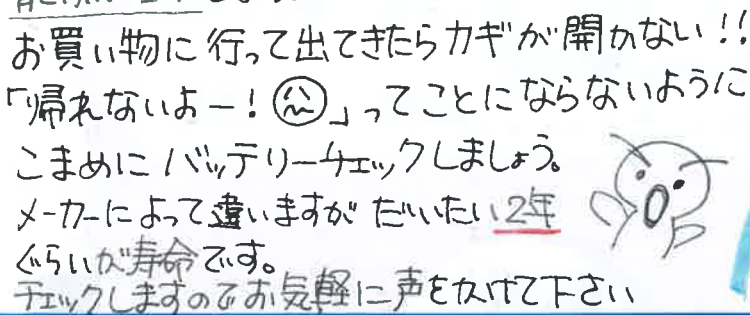 お買い物に行って出てきたらカギが開かない!!
「帰れないよー!」ってことにならないように
こまめにバッテリーチェックしましょう。
メーカーによって違いますがだいたい2年
ぐらいが寿命です。
チェックしますのでお気軽に声をかけて下さい